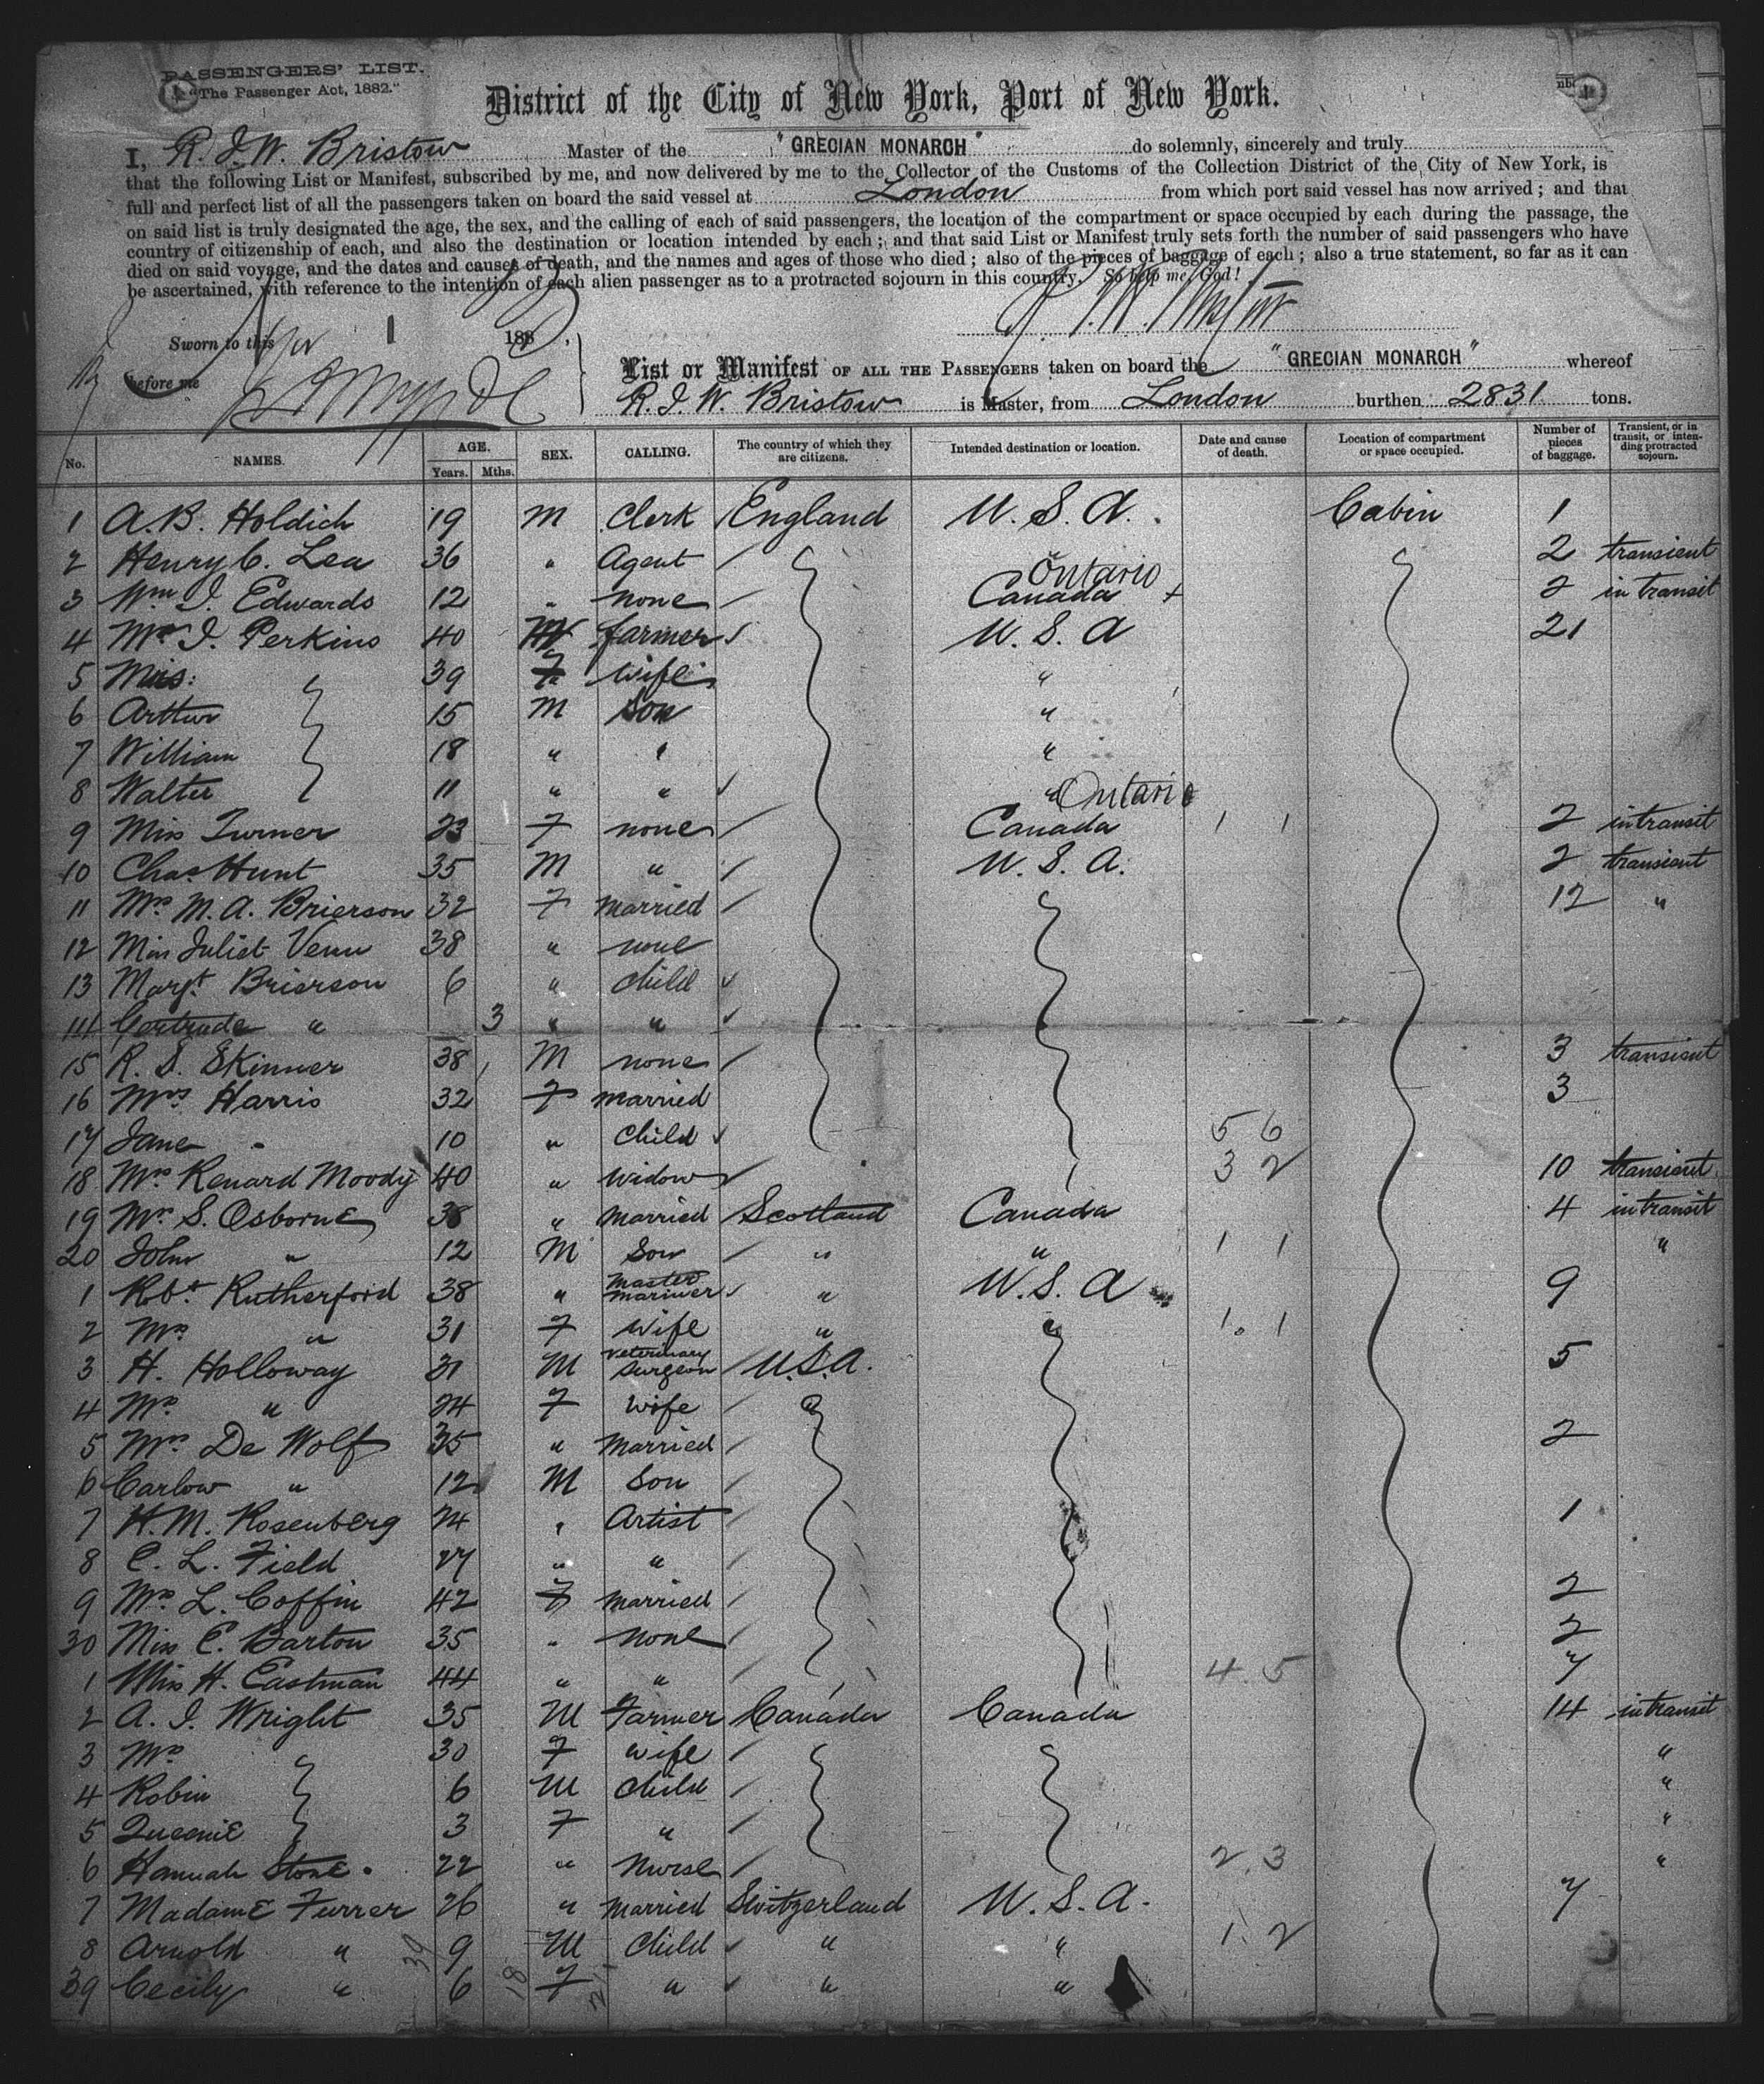 PASSENGERS' LIST.
"The Passenger Act, 1882."
District of the City of New York, Port of New York.
I, R. J. W. Bristow Master of the "GRECIAN MONARCH" do solemnly, sincerely and truly
that the following List or Manifest, subscribed by me, and now delivered by me to the Collector of the Customs of the Collection District of the City of New York, is
full and perfect list of all the passengers taken on board the said vessel at London from which port said vessel has now arrived; and that
on said list is truly designated the age, the sex, and the calling of each of said passengers, the location of the compartment or space occupied by each during the passage, the
country of citizenship of each, and also the destination or location intended by each; and that said List or Manifest truly sets forth the number of said passengers who have
died on said voyage, and the dates and causes of death, and the names and ages of those who died; also of the pieces of baggage of each; also a true statement, so far as it can
be ascertained, with reference to the intention of each alien passenger as to a protracted sojourn in this country. So help me, God!
Sworn to this 1 188
before me
List or Manifest OF ALL THE PASSENGERS taken on board the "GRECIAN MONARCH" whereof
R. J. W. Bristow is Master, from London burthen 2831 tons.
No. NAMES. AGE. Years. Mths. SEX. CALLING. The country of which they are citizens. Intended destination or location. Date and cause of death. Location of compartment or space occupied. Number of pieces of baggage. Transient, or in transit, or intending protracted sojourn.
1 A. B. Holdich 19 M Clerk England U. S. A. Cabin 1
2 Henry C. Lea 36 " Agent " 2 transient
3 Wm J. Edwards 12 " none Ontario Canada + 2 in transit
4 Mr J. Perkins 40 M farmer U. S. A 21
5 Mrs: 39 F wife "
6 Arthur 15 M Son "
7 William 18 " " "
8 Walter 11 " " "
9 Miss Turner 23 F none Ontario Canada 1 1 2 in transit
10 Chas Hunt 35 M " U. S. A. 2 transient
11 Mrs M. A. Brierson 32 F married 12 "
12 Miss Juliet Venn 38 " none
13 Margt Brierson 6 " child
14 Gertrude " 3 " "
15 R. S. Skinner 38 M none 3 transient
16 Mrs Harris 32 F married 3
17 Jane " 10 " Child 5 6
18 Mrs Renard Moody 40 " Widow 3 2 10 transient
19 Mrs S. Osborne 38 " married Scotland Canada 4 in transit
20 John " 12 M Son " " 1 1 "
1 Robt Rutherford 38 " master mariner " U. S. A 9
2 Mrs " 31 F Wife " " 1. 1
3 H. Holloway 31 M Veterinary Surgeon U.S.A. 5
4 Mrs " 24 F Wife
5 Mrs De Wolf 35 " Married 2
6 Carlow " 12 M Son
7 H. M. Rosenberg 24 " Artist 1
8 C. L. Field 27 " "
9 Mrs L. Coffin 42 F Married 2
30 Miss C. Barton 35 " none 2
1 Miss H. Eastman 44 " " 4 5 7
2 A. J. Wright 35 M Farmer Canada Canada 14 in transit
3 Mrs 30 F Wife "
4 Robin 6 M Child "
5 Queenie 3 F " "
6 Hannah Stone. 22 " Nurse 2. 3 "
7 Madame Furrer 26 " Married Switzerland U. S. A. 7
8 Arnold " 9 M Child " " 1. 2
39 Cecily " 6 F " " "
39 18 21